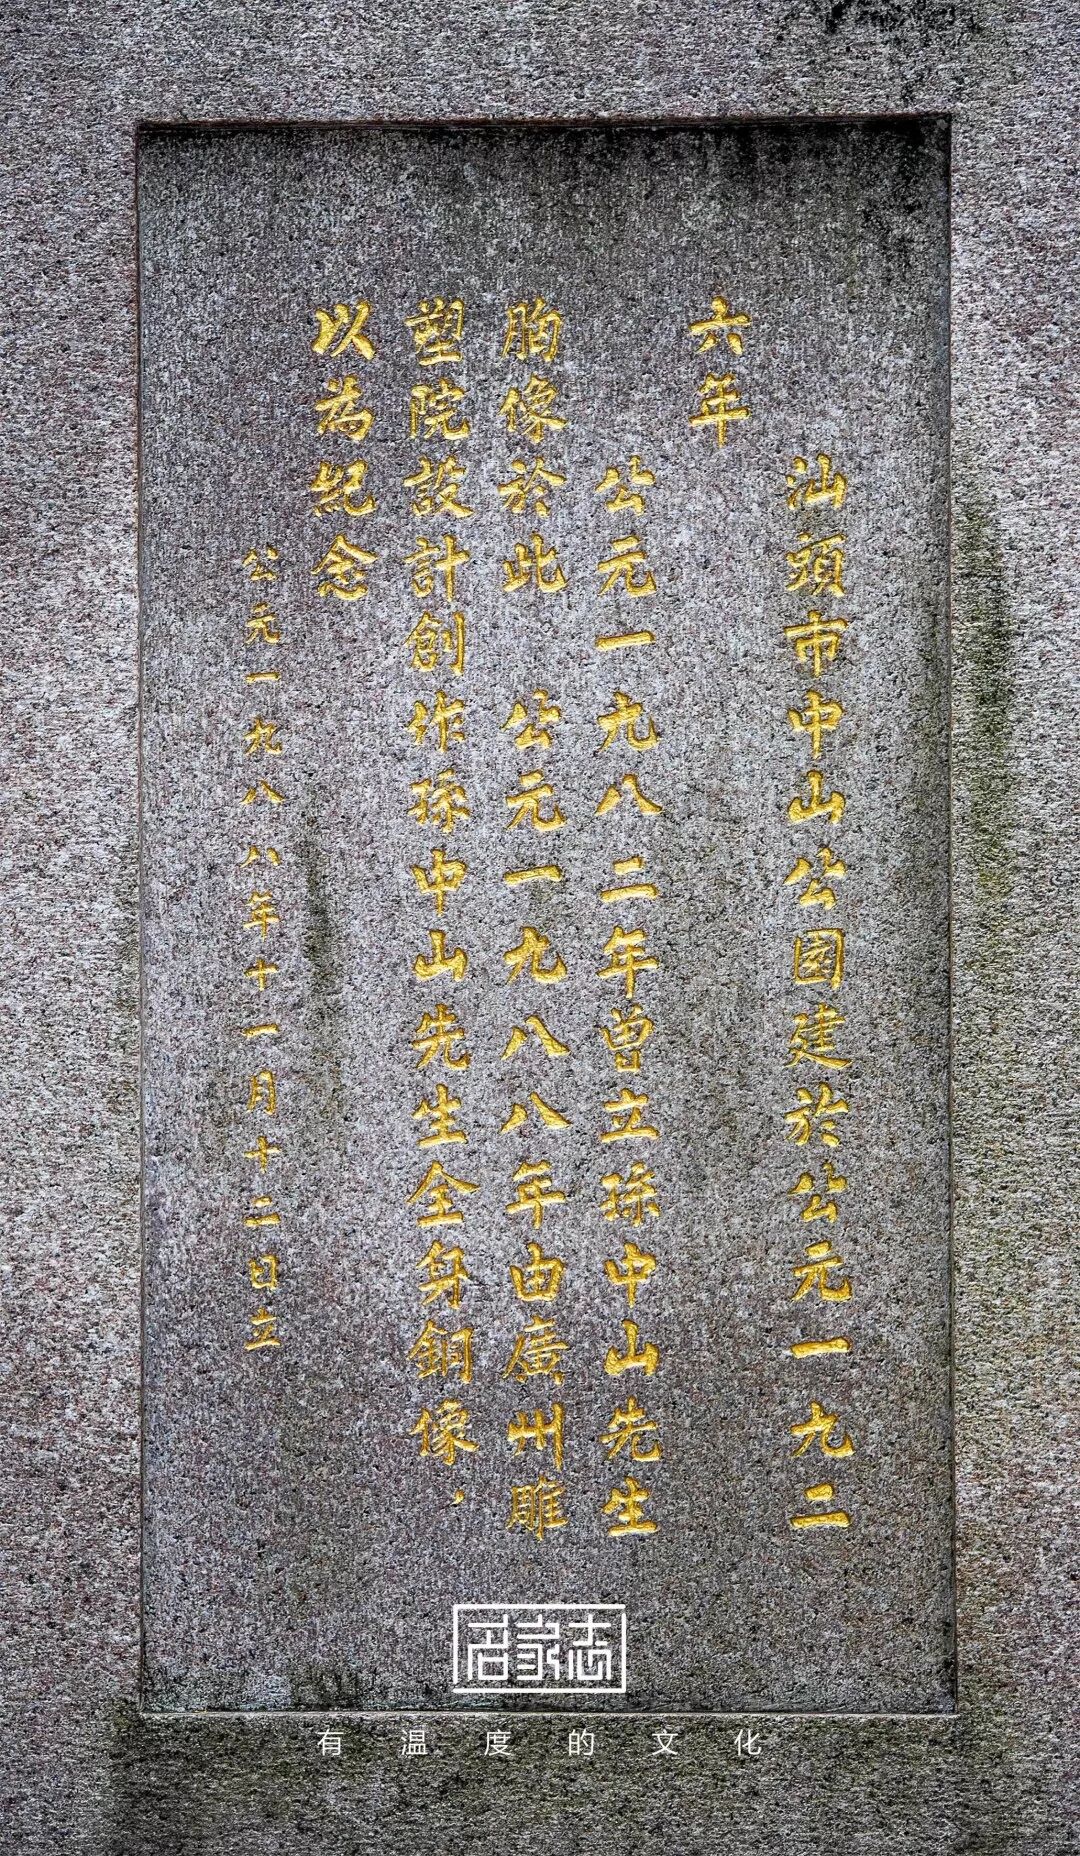 汕頭市中山公園建於公元一九二
六年
公元一九八二年曾立孫中山先生
胸像於此　公元一九八八年由廣州雕
塑院設計創作孫中山先生全身銅像，
以為紀念
公元一九八八年十一月十二日立
名家志
有温度的文化